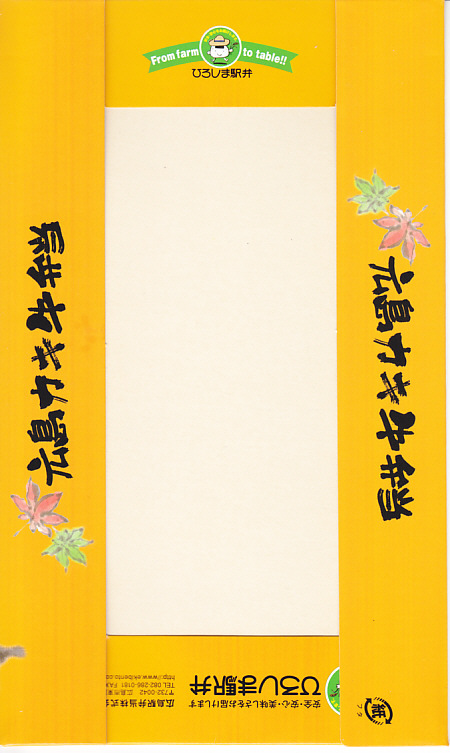 From farm to table!!
ひろしま駅弁
広島カキ牛弁当
広島カキ牛弁当
安全・安心・美味しさをお届けします
ひろしま駅弁
広島駅弁当株式
〒732-0042 広島市東
TEL 082-286-0181 FAX
http://www.ekibento.co
紙
フタ